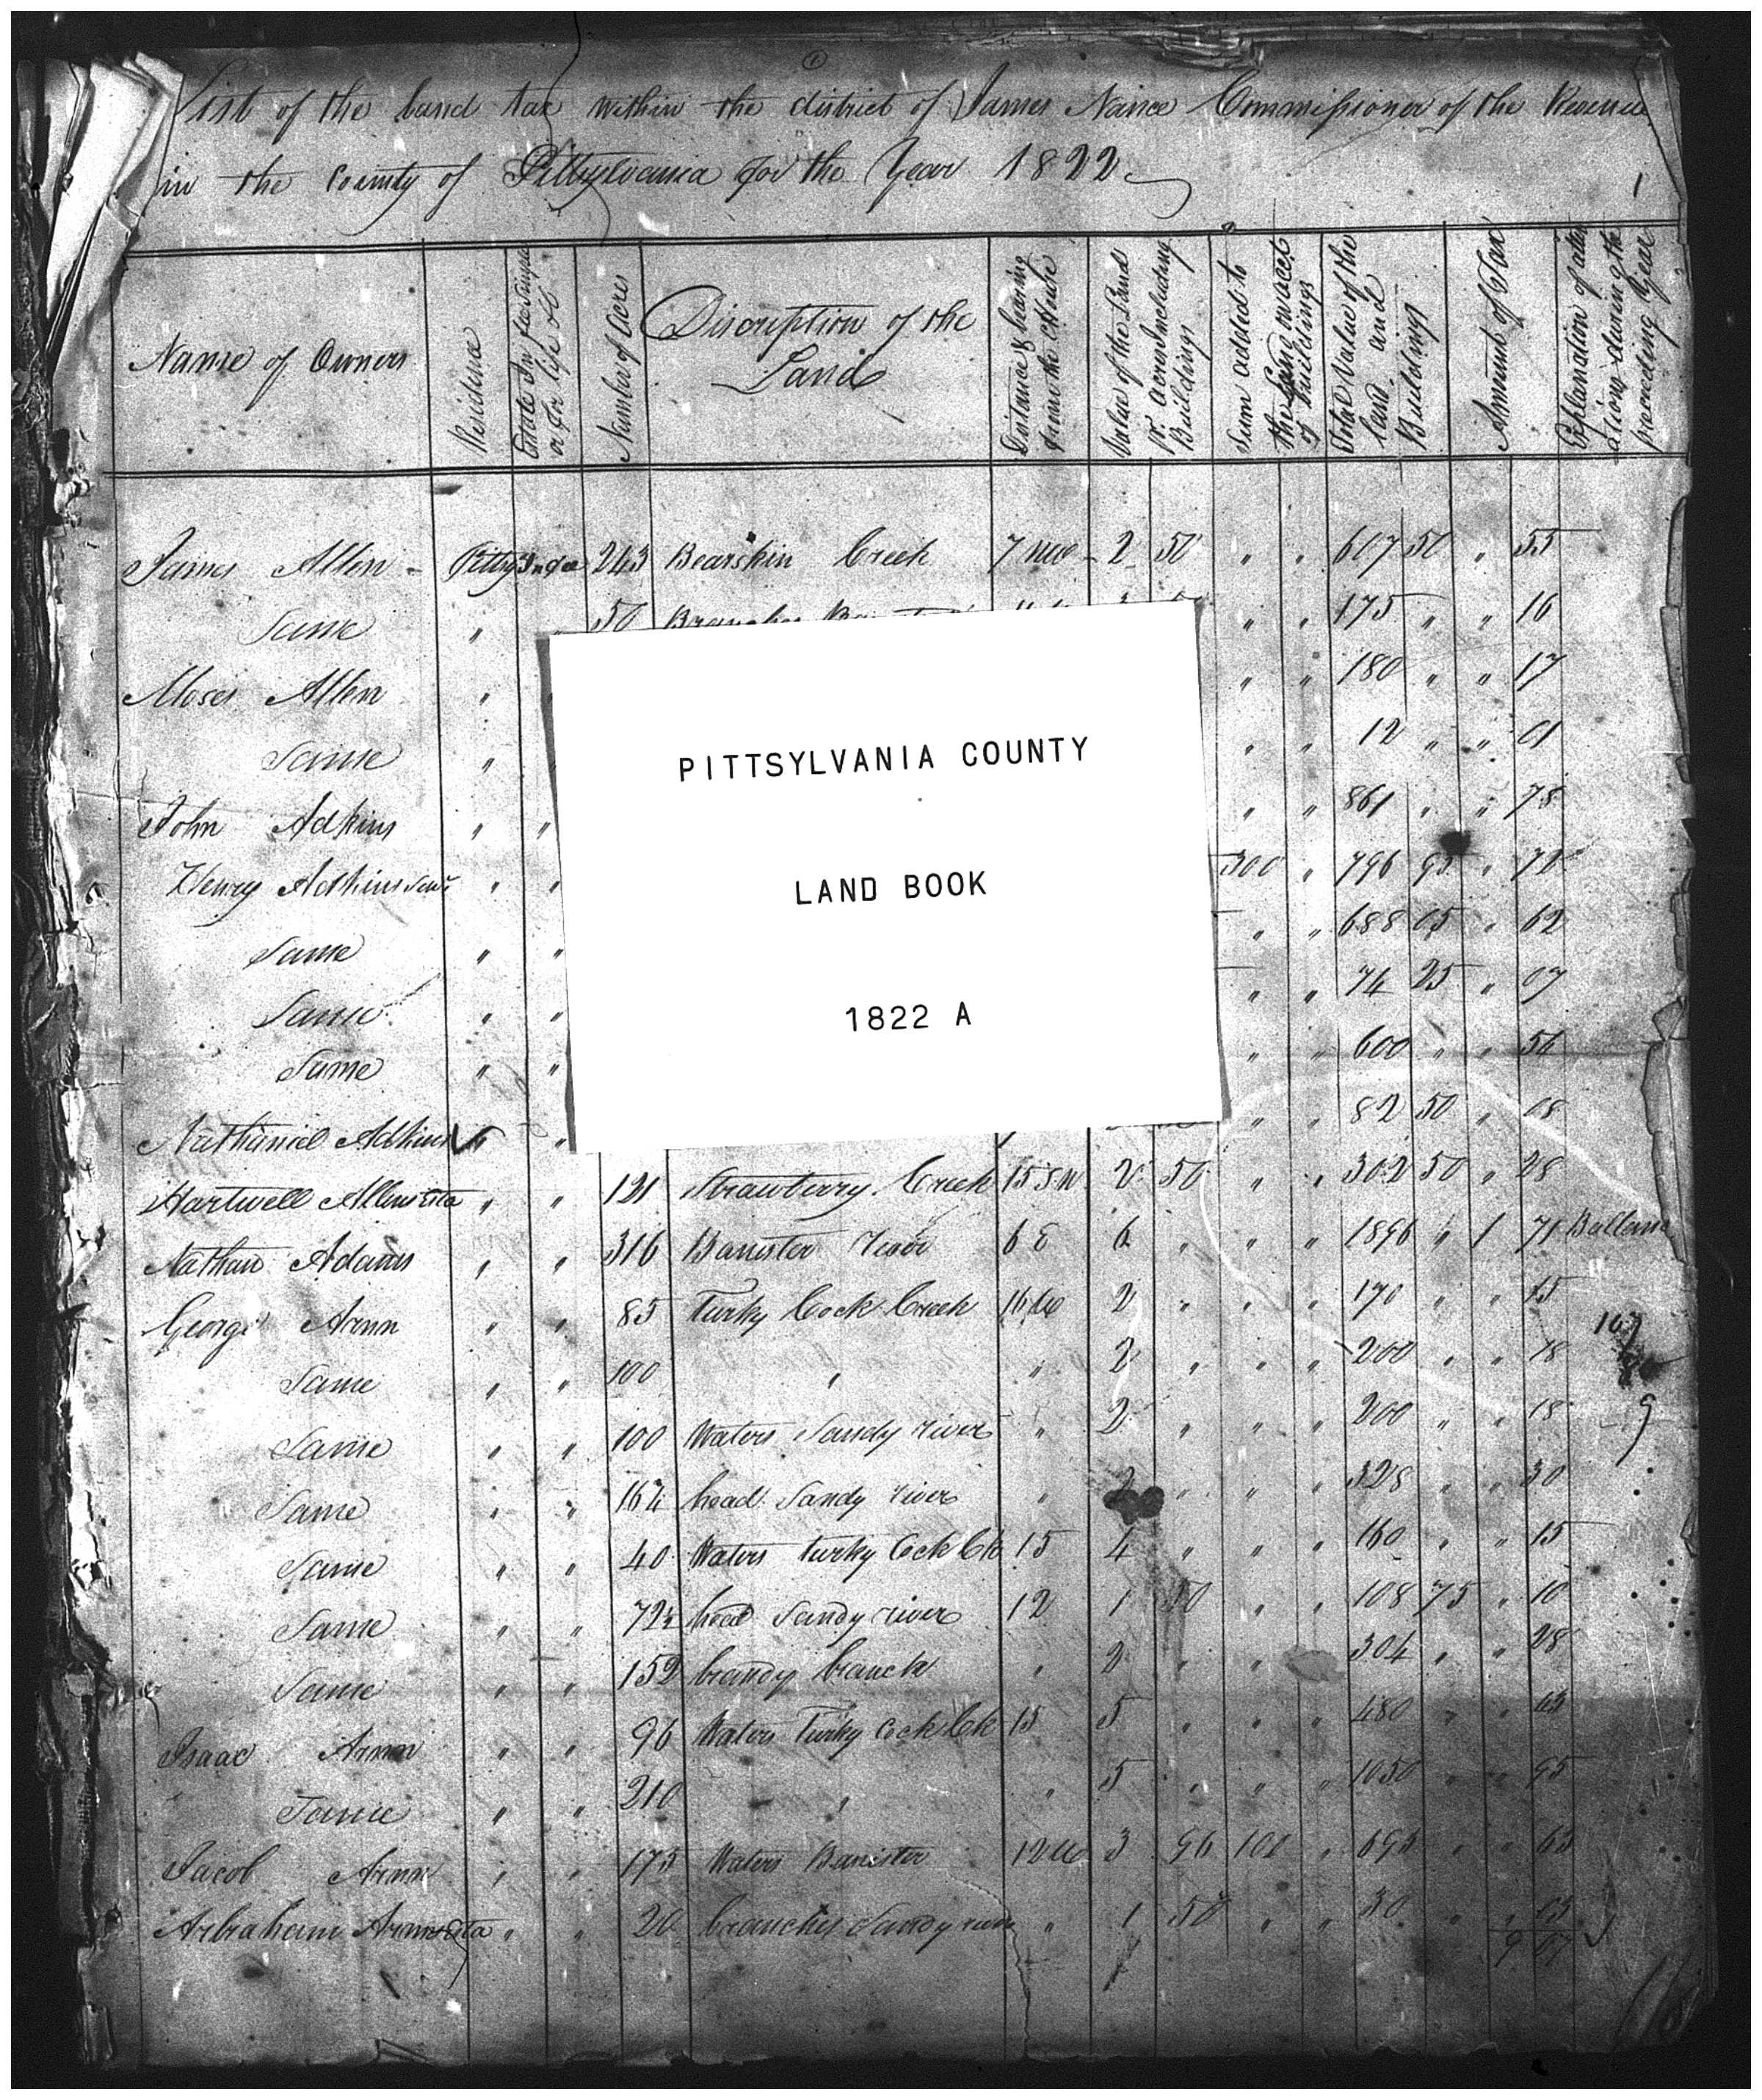 List of the land tax within the district of James Nance Commissioner of the Revenue
in the County of Pittsylvania for the Year 1822
1
Name of Owners
Residence
Estate In fee Simple or for life &c
Number of Acre
Discription of the Land
Distance & bearing from the CHouse
Value of the Land pr. acre Including Buildings
Sum added to the Land on acct of buildings
Total Value of the land and Buildings
Amount of Tax
Explanation of alterations during the preceeding Year
James Allen Pitts In fee 243 Bearskin Creek 7 2 50 " " 607 50 " 55
Same " " 50 Branches " " 175 " " 16
Moses Allen " " " 180 " " 17
Same " " " 12 " " 01
John Adkins " " " " 861 " " 78
Henry Adkins Senr " " 300 " 796 95 " 72
Same " " " " 688 05 " 62
Same " " " " 74 25 " 07
Same " " " " 600 " " 54
Nathaniel Adkins " " " " 82 50 " 08
Hartwell Allen Esta " " 121 Strawberry Creek 15 SW 2 50 " " 302 50 " 28
Nathan Adams " " 316 Banister River 6 E 6 " " " 1896 " 1 71
George Arnn " " 85 Turky Cock Creek 16 W 2 " " " 170 " " 15
Same " " 100 " " 2 " " " 200 " " 18
Same " " 100 Waters Sandy river " 2 " " " 200 " " 18
Same " " 164 head Sandy river " 2 " " " 328 " " 30
Same " " 40 Waters turky Cock Ck 15 4 " " " 160 " " 15
Same " " 72½ head Sandy river 12 1 50 " " 108 75 " 10
Same " " 152 brandy branch " 2 " " " 304 " " 28
Isaac Arnn " " 96 Waters Turky Cock Ck 15 5 " " " 480 " "
Same " " 210 " " 5 " " " 1050 " " 95
Jacob Arnn " " 175 Waters Banister 12 W 3 96 " " " 63
Arbraham Arnn Esta " " 20 branches Sandy river " 1 50 " " 30 " " 03
9 07
PITTSYLVANIA COUNTY
LAND BOOK
1822 A